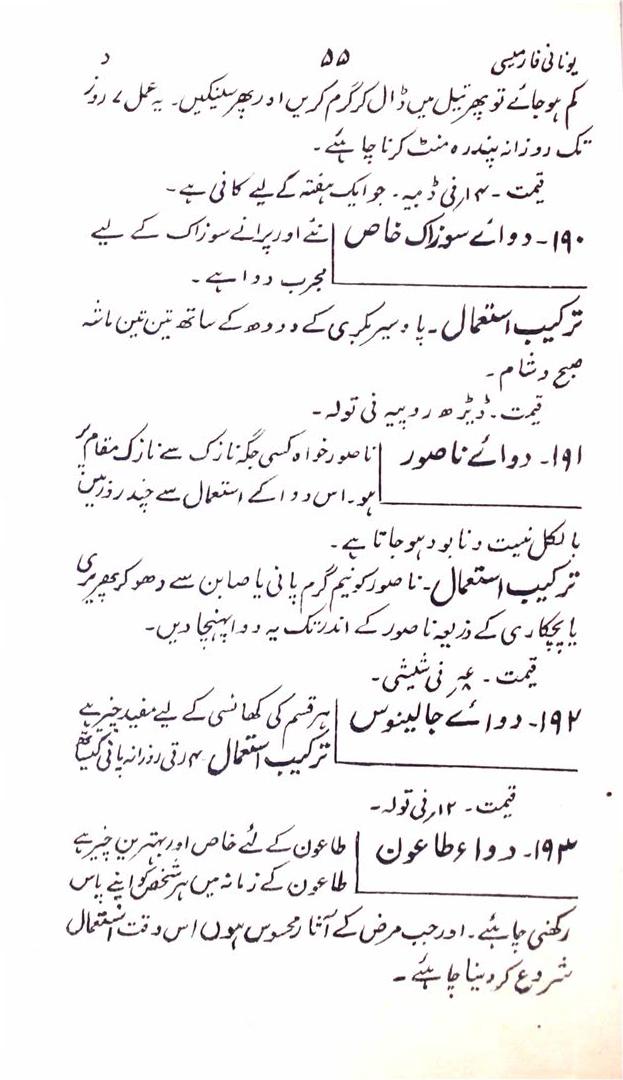 یونانی فارمیسی ۵۵ د
کم ہو جائے تو پھر تیل میں ڈال کر گرم کریں اور پھر سینکیں۔ یہ عمل ۷ روز
تک روزانہ پندرہ منٹ کرنا چاہئے۔
قیمت ۔ ۱۴ر فی ڈبیہ ۔ جو ایک ہفتہ کے لیے کافی ہے۔
۱۹۰۔ دوائے سوزاک خاص نئے اور پرانے سوزاک کے لیے
مجرب دوا ہے ۔
ترکیب استعمال ۔ پاؤ سیر بکری کے دودھ کے ساتھ تین تین ماشہ
صبح و شام ۔
قیمت ۔ ڈیڑھ روپیہ فی تولہ ۔
۱۹۱۔ دوائے ناصور ناصور خواہ کسی جگہ نازک سے نازک مقام پر
ہو۔ اس دوا کے استعمال سے چند روز میں
بالکل نیست و نابود ہو جاتا ہے ۔
ترکیب استعمال ۔ ناصور کو نیم گرم پانی یا صابن سے دھو کر پھریری
یا پچکاری کے ذریعہ ناصور کے اندر تک یہ دوا پہنچا دیں ۔
قیمت ۔ فی شیشی ۔
۱۹۲۔ دوائے جالینوس ہر قسم کی کھانسی کے لیے مفید چیز ہے
ترکیب استعمال ۴ رتی روزانہ پانی کیساتھ
قیمت ۔ ۱۲ر فی تولہ ۔
۱۹۳۔ دواء طاعون طاعون کے لئے خاص اور بہترین چیز ہے
طاعون کے زمانہ میں ہر شخص کو اپنے پاس
رکھنی چاہئے ۔ اور جب مرض کے آثار محسوس ہوں اس وقت استعمال
شروع کر دینا چاہئے ۔